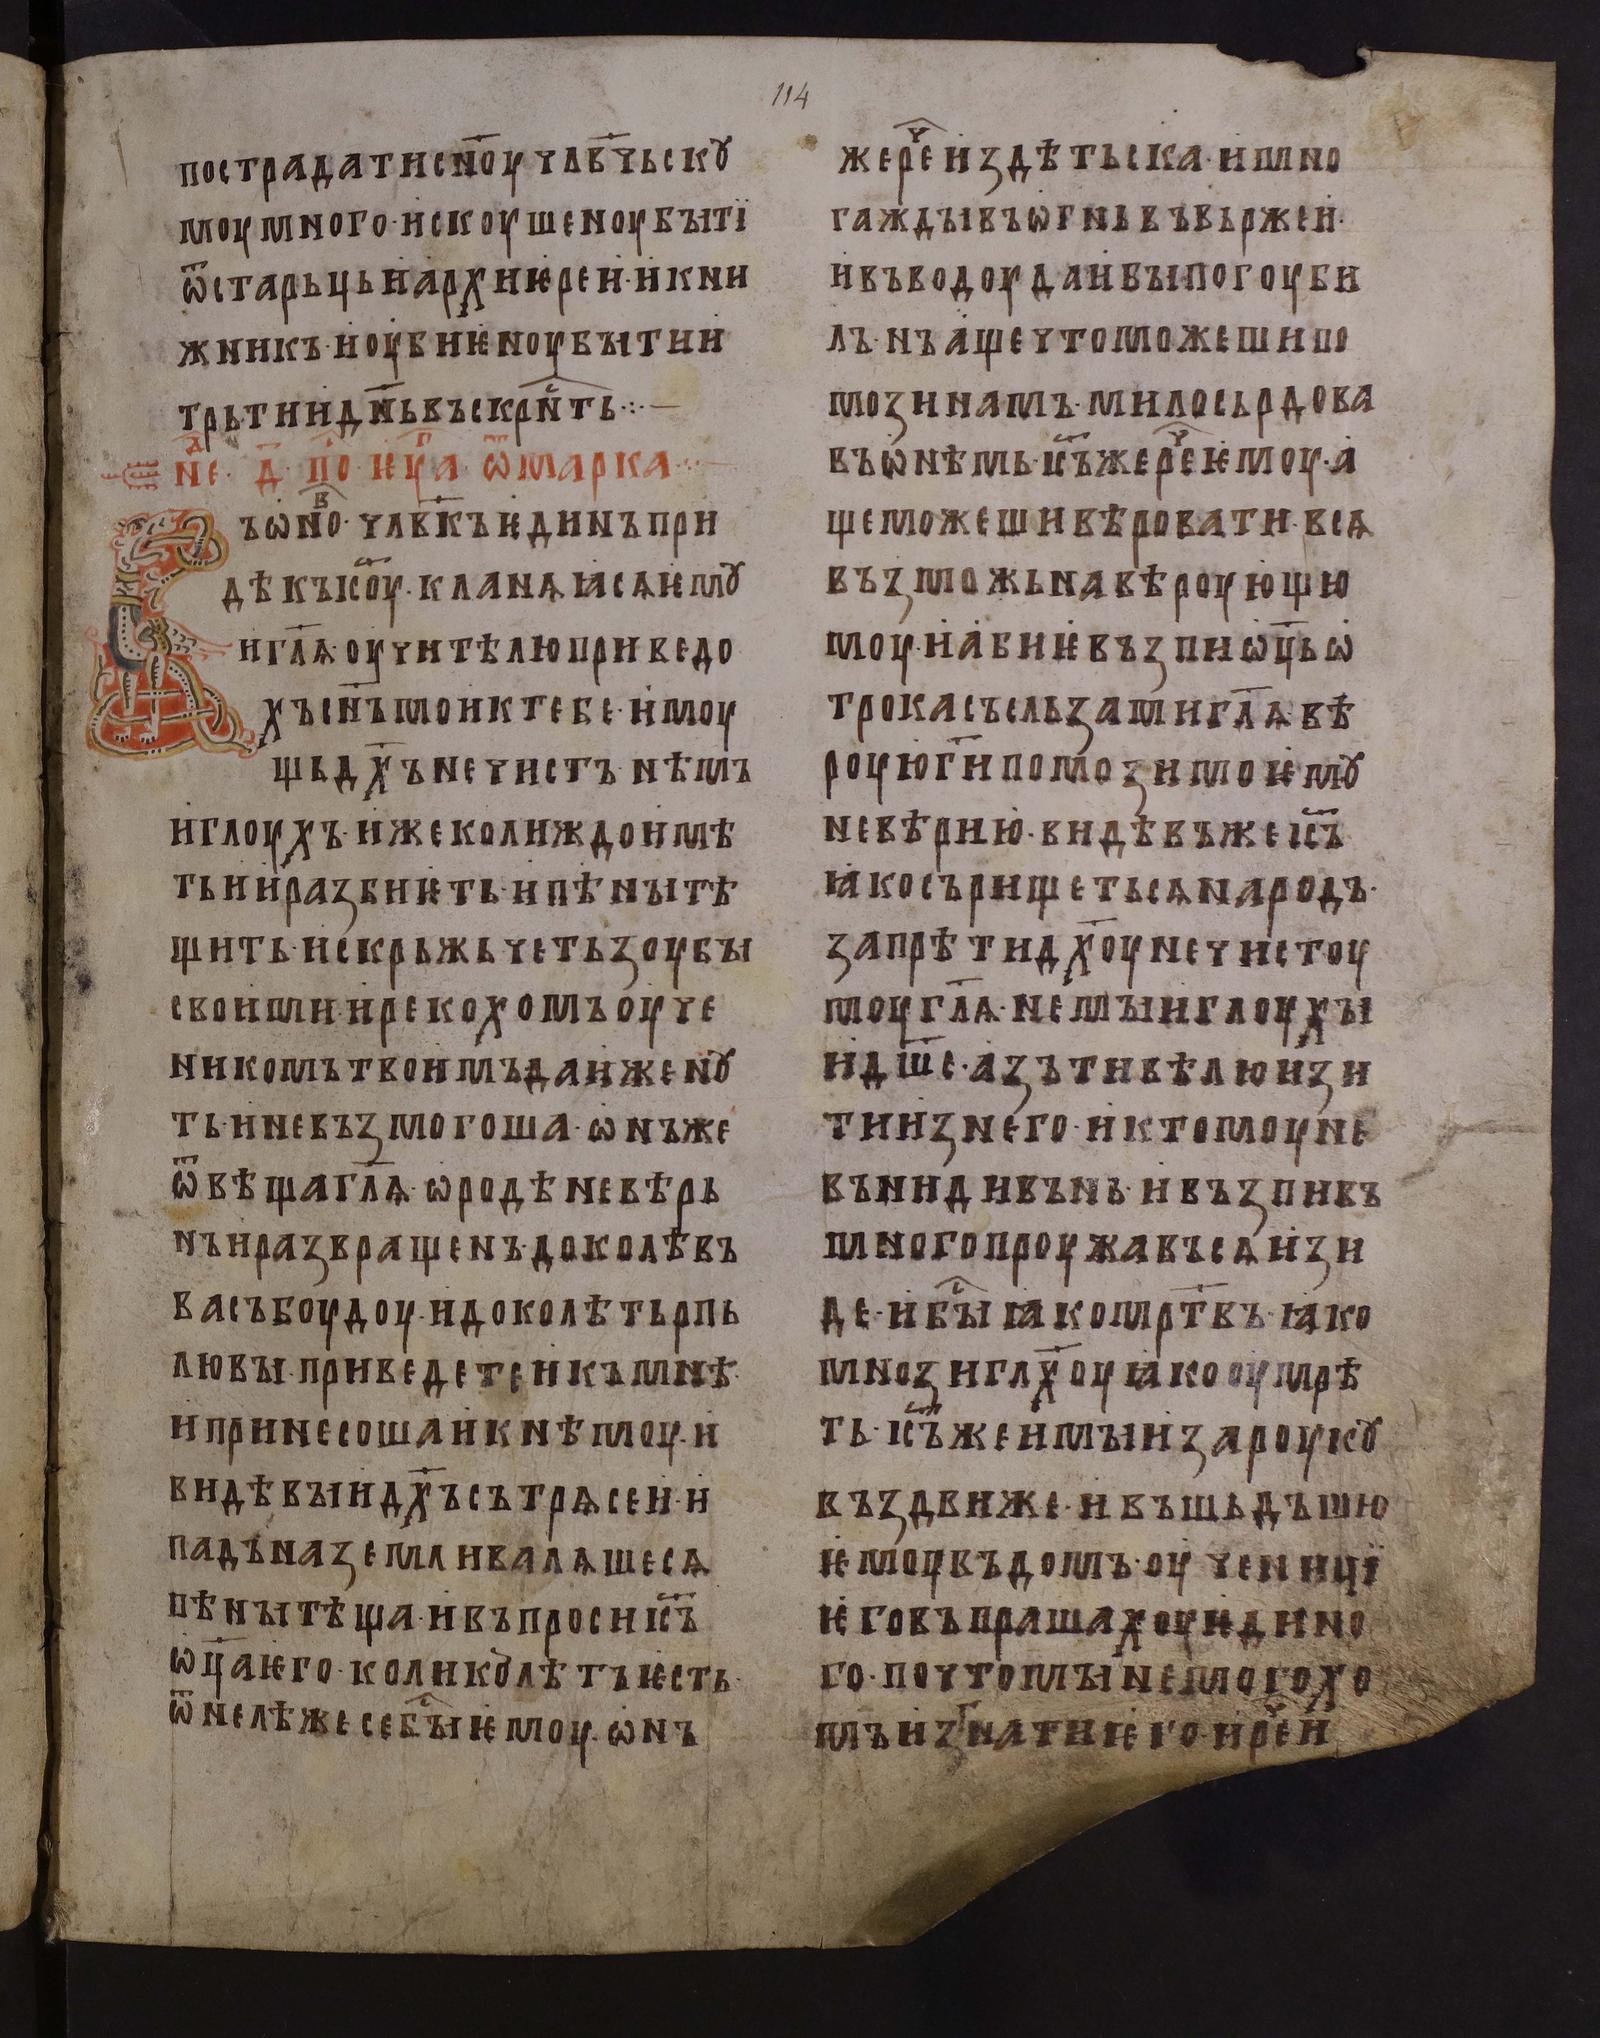 114
пострадати сн҃оу чл҃вчьскꙋ
моу много· искоушеноу быті
ѿ старьць и архиѥреи· и кни
жникъ· и оубиѥноу быти и
трьтии дн҃ь въскрⷭ҇нть
нⷣе· д҃· поⷭ· ѥуⷢ҇а· ѿ марка
ъ ѡноⷡ· чл҃вкъ ѥдинъ при
дѣ къ іс҃оу· кланѧꙗсѧ ѥмꙋ
и гл҃ѧ· оучителю приведо
хъ сн҃ъ мои к тебе· имоу
щь дх҃ъ нечистъ нѣмъ
и глоухъ· иже колиждо имѣ
ть и разбиѥть· и пѣны тѣ
щить· и скрьжьчеть зоубы
своими· и рекохомъ оуче
никомъ твоимъ да ижену
ть· и невъзмогоша· ѡнъ же
ѿвѣща гл҃ѧ· ѡ роде невѣрь
нъ и развращенъ· доколѣ въ
васъ боудоу· и доколѣ тьрпь
лю вы· приведете и къ мнѣ·
и принесоша и к нѣмоу· и
видѣвыи дх҃ъ сътрѧсе и· и
падъ на земли валѧшесѧ
пѣны тѣща· и въпроси іс҃ъ
ѡц҃а ѥго· коликꙋ лѣтъ ѥсть·
ѿнелѣже се быⷭ ѥмоу· ѡнъ
же реⷱ҇е из дѣтьска· и мно
гажды въ ѡгнь въвьржен·
и въ водоу да и бы погоуби
лъ· нъ аще что можеши по
мози намъ· милосьрдова
въ ѡ нѣмь· іс҃ъ же реⷱ҇е ѥмоу· а
ще можеши вѣровати· всѧ
възможьна вѣроующю
моу· и абиѥ възпи ѡц҃ь ѡ
трока съ сльзами гл҃ѧ вѣ
роую г҃и помози моѥмꙋ
невѣрию· видѣвъ же іс҃ъ
ꙗко сърищетьсѧ народъ·
запрѣти дх҃оу нечистоу
моу гл҃ѧ· немыи глоухы
и дш҃е· азъ ти вѣлю изи
ти из него· и к томоу не
вънид и вънь· и възпивъ
много проужавъсѧ изи
де· и быⷭ ꙗко мрт҃въ· ꙗко
мнози глх҃оу ꙗко оумрѣ
ть· іс҃ъ же имы и за роукꙋ
въздвиже· и въшьдъшю
ѥмоу въ домъ· оученици
ѥго въпрашахоу ѥдино
го· по что мы не могохо
мъ изⷢ҇нати ѥго· и реⷱ҇ и